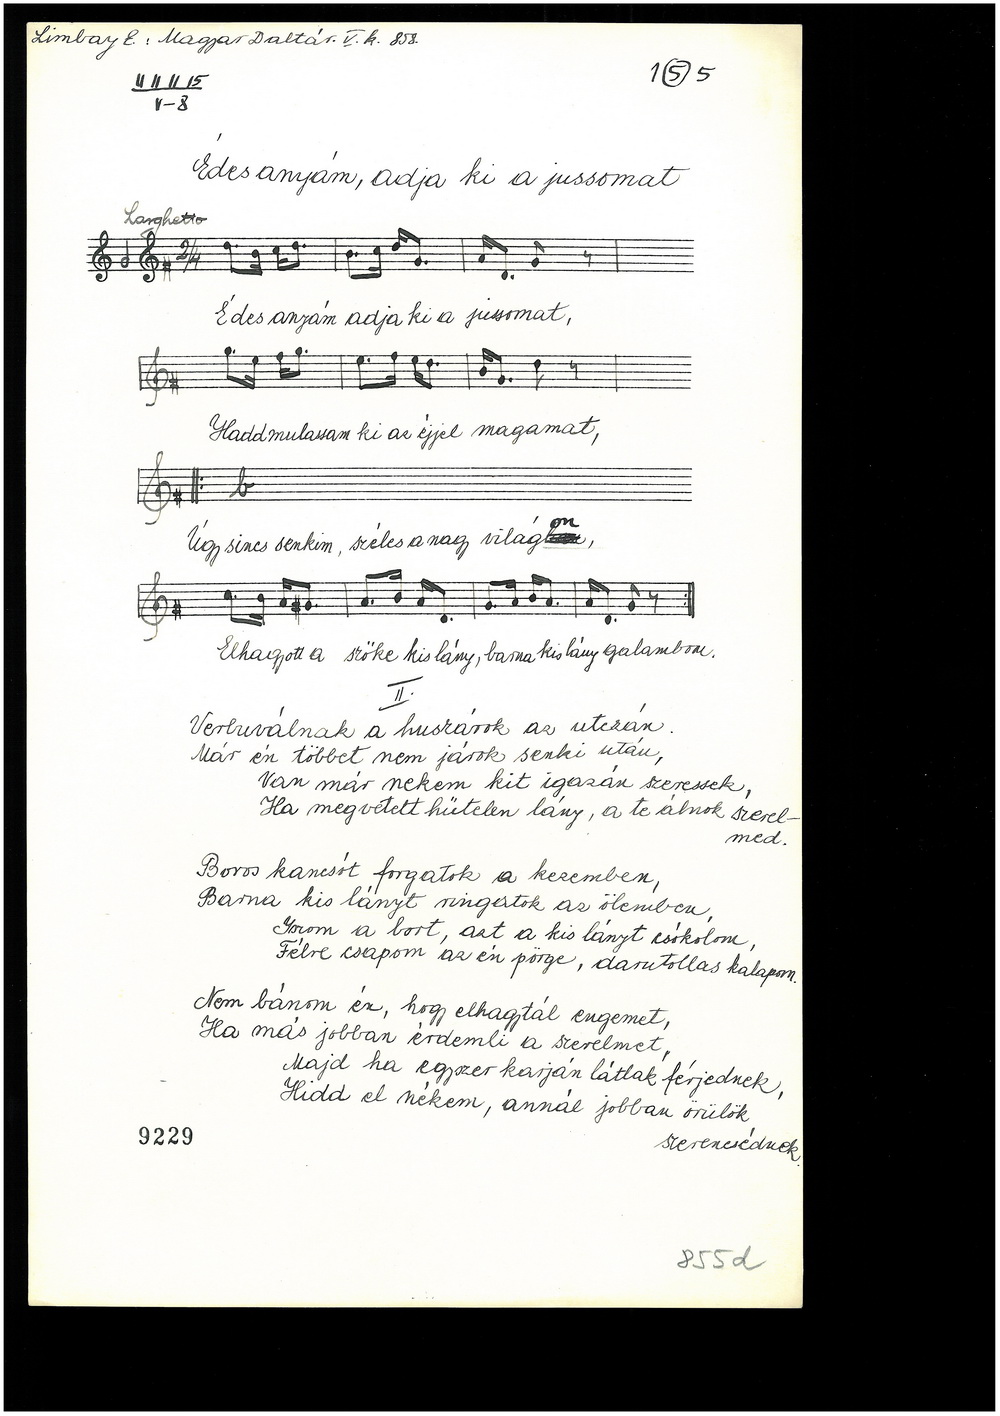 Limbay E.: Magyar Daltár. V. k. 858.
11 11 11 15
V–8
1 5 5
Édes anyám, adja ki a jussomat
Larghetto
2/4
Édes anyám adja ki a jussomat,
Hadd mulassam ki az éjjel magamat,
b
Úgy sincs senkim, széles a nagy világon,
Elhagyott a szőke kis lány, barna kis lány galambom.
II.
Verbuválnak a huszárok az utczán.
Már én többet nem járok senki után,
Van már nekem kit igazán szeressek,
Ha megvetett hűtelen lány, a te álnok szerel-
med.
Boros kancsót forgatok a kezemben,
Barna kis lányt ringatok az ölemben,
Iszom a bort, azt a kis lányt csókolom,
Félre csapom az én pörge, darutollas kalapom.
Nem bánom én, hogy elhagytál engemet,
Ha más jobban érdemli a szerelmet,
Majd ha egyszer karján látlak férjednek,
Hidd el nékem, annál jobban örülök
szerencsédnek.
9229
855d